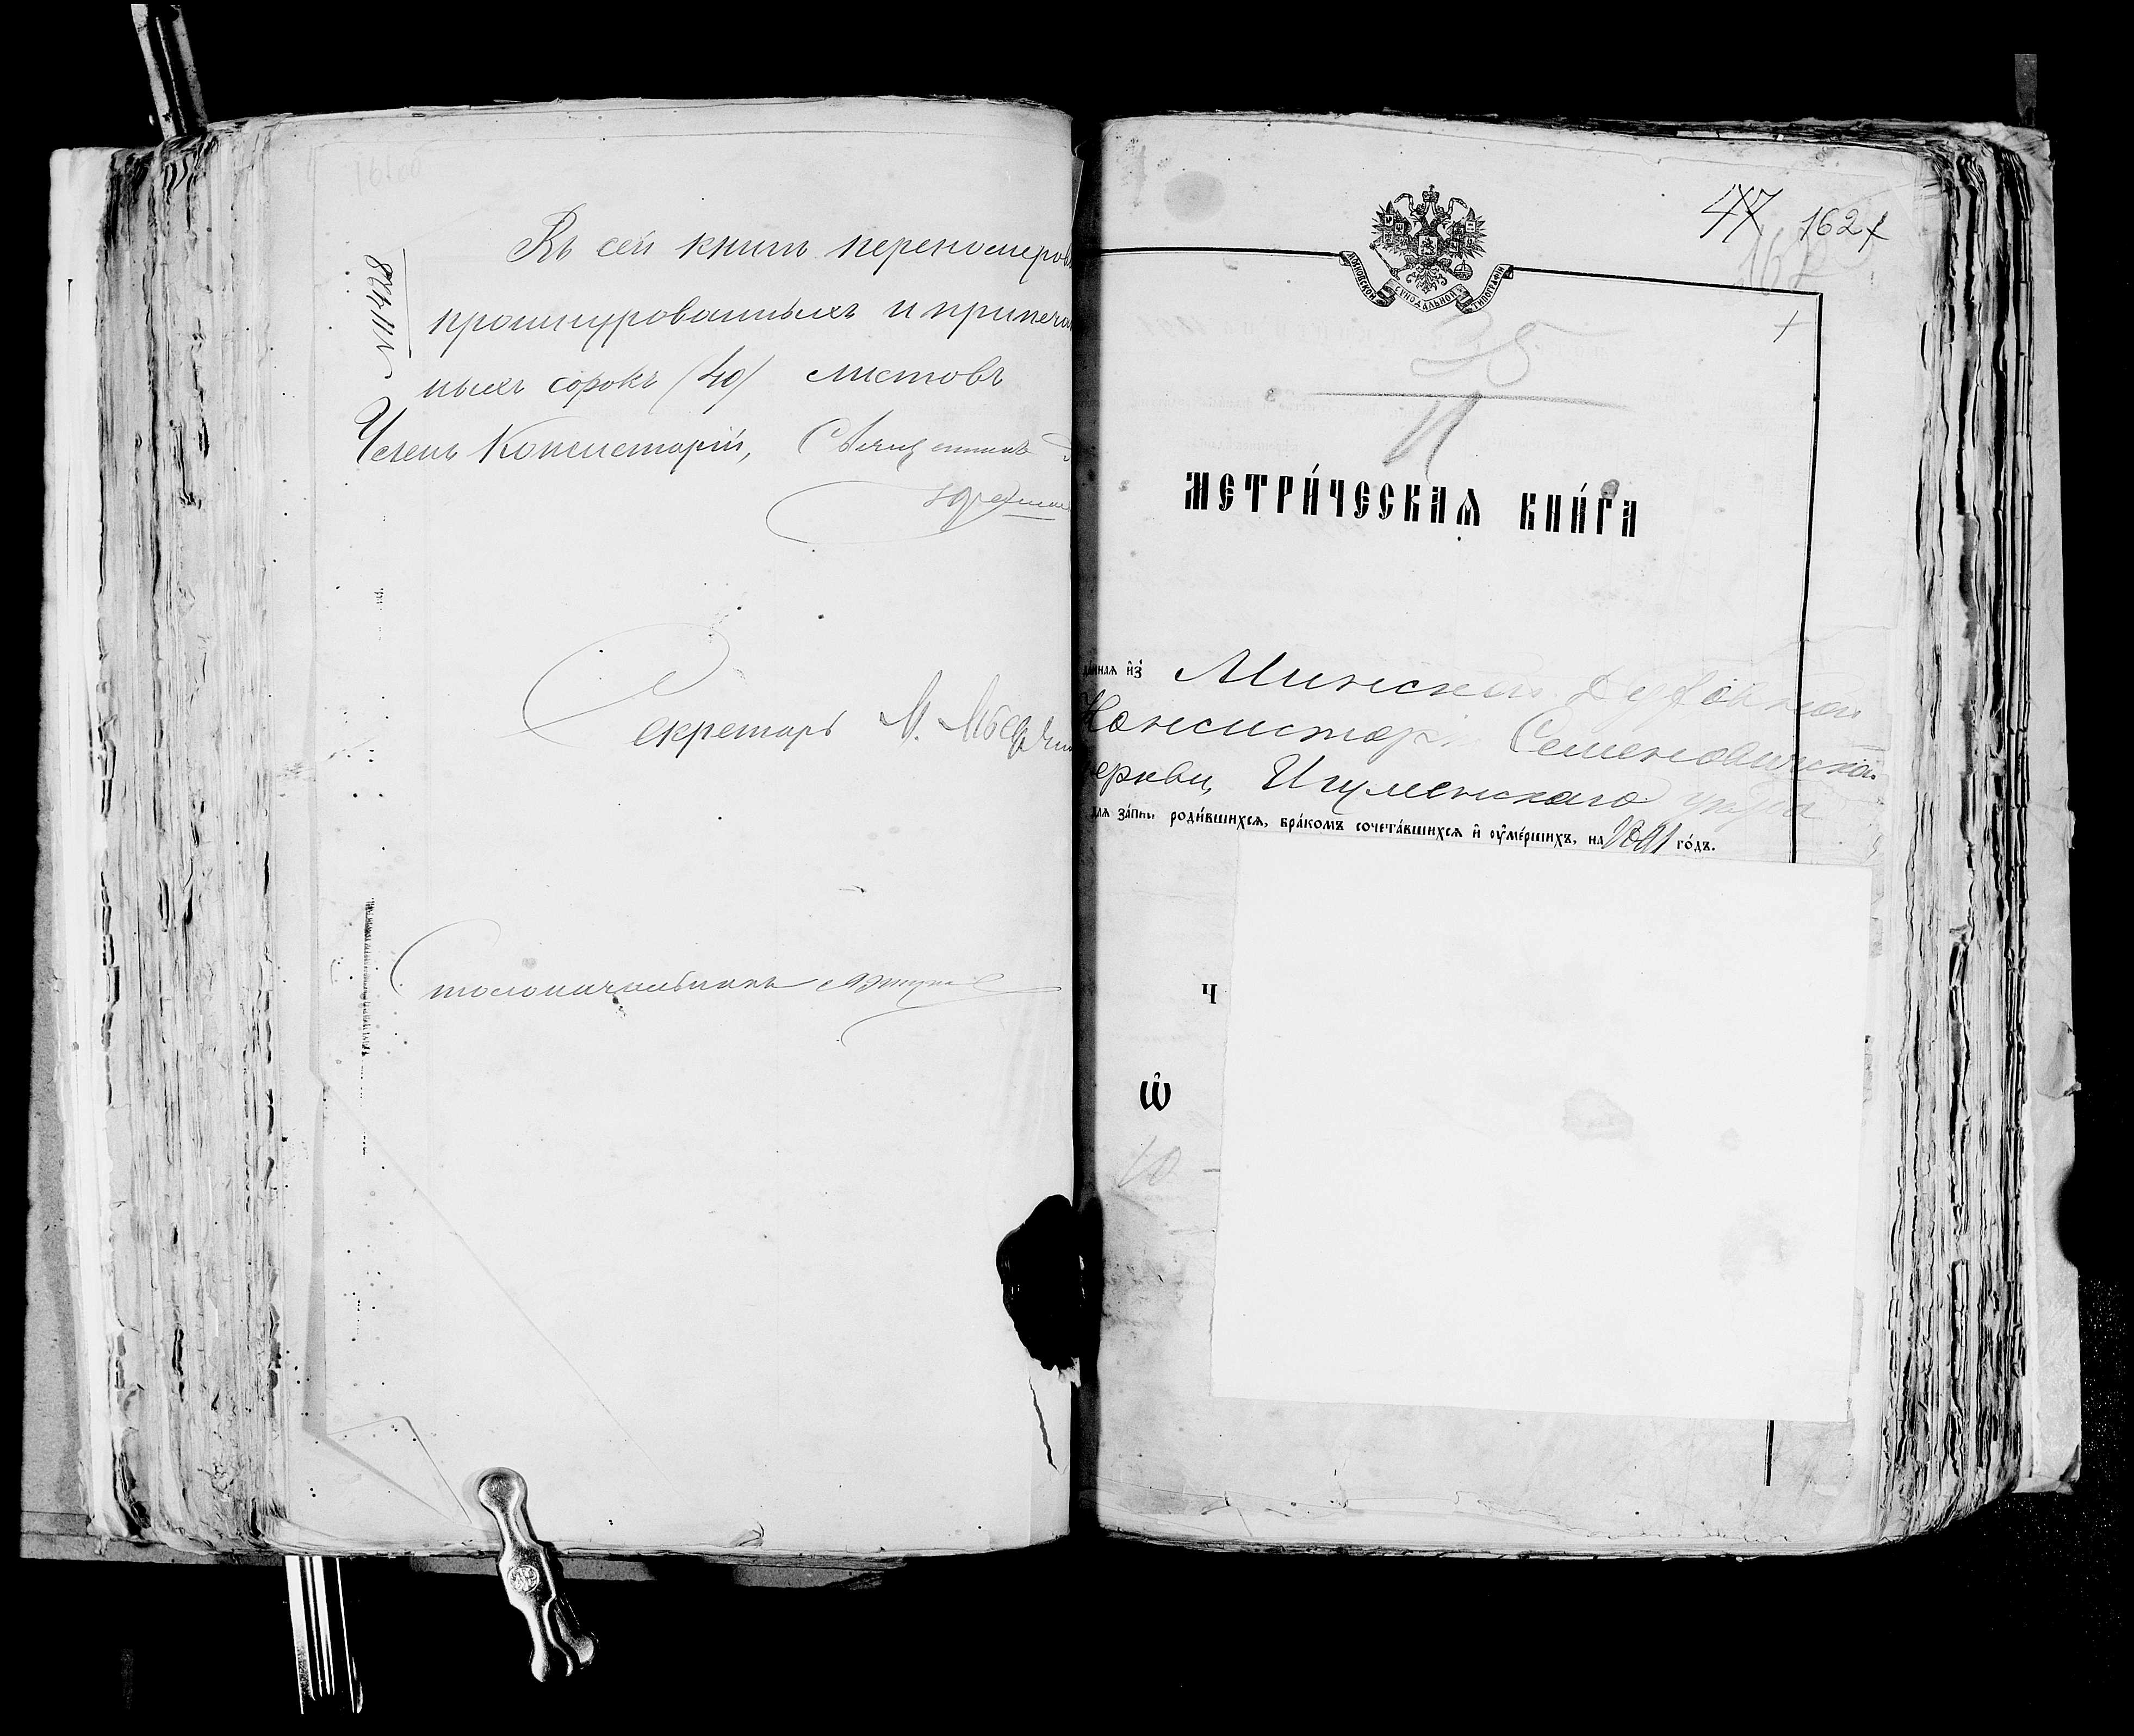 161об
№11428
Въ сей книгѣ перенумеров
прошнурованныхъ и припеча
ныхъ сорокъ /40/ листовъ
Членъ Консисторіи, Священникъ
Секретарь М.
Столоначальникъ
47 162
162
МОСКОВСКОЙ СѴНОДАЛЬНОЙ ТИПОГРАФІИ
35
МЕТРИ́ЧЕСКАѦ КНИ́ГА
да́ннаѧ и҆з̾ Минской Духовной
Консисторі Семеновичской
Церкви, Игуменскаго уѣзда
для за́писи роди́вшихсѧ, бра́комъ сочета́вшихсѧ и҆ ѹ҆ме́ршихъ, на 1891 го́дъ.
Ч
Ѽ
10 –